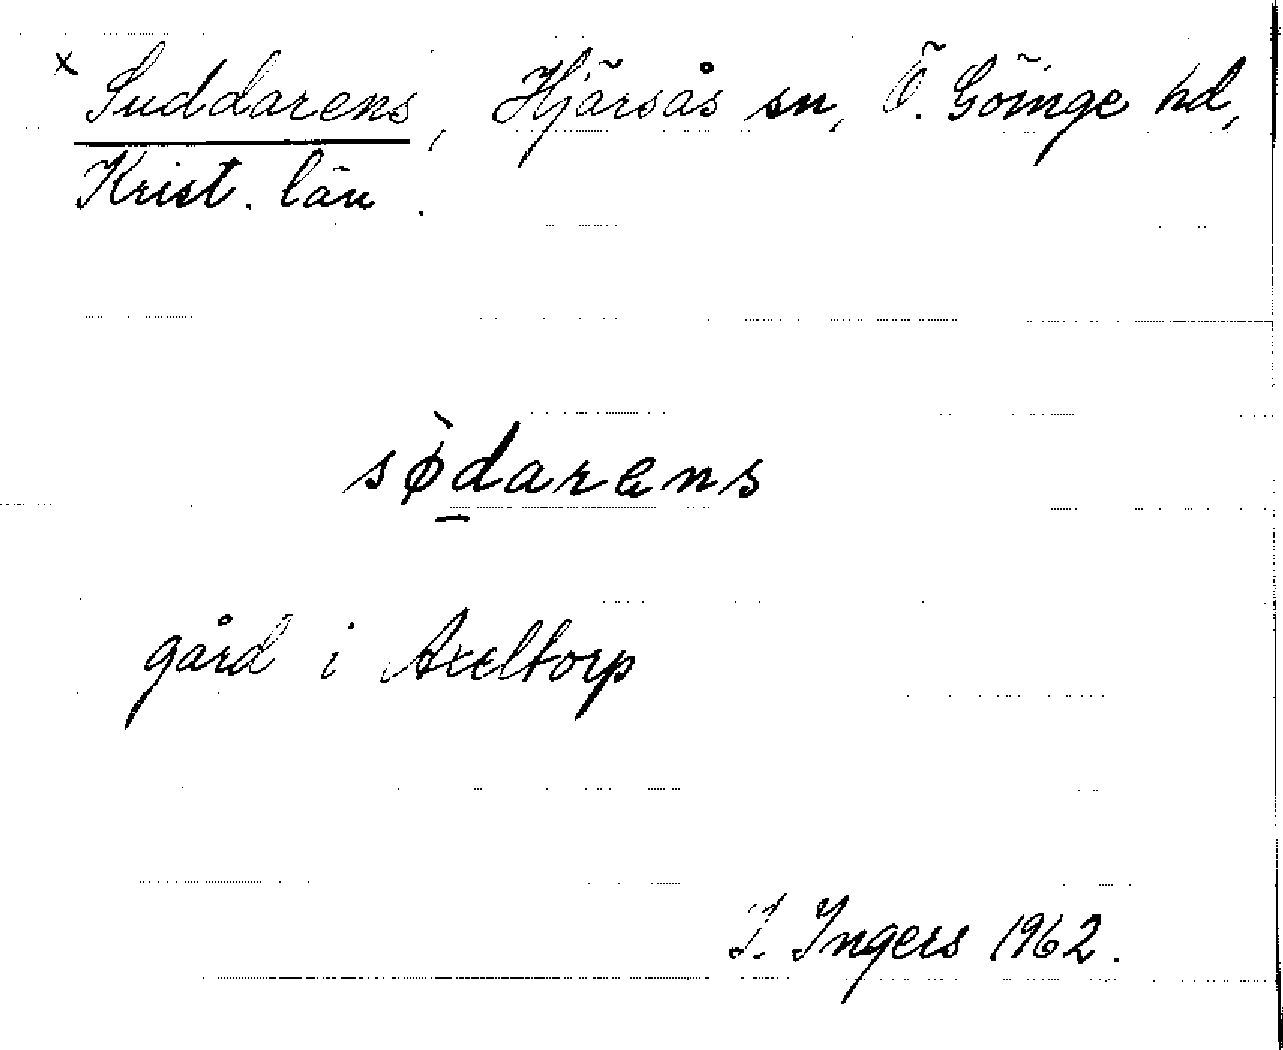 x Suddarens, Hjärsås sn, Ö. Göinge hd,
Krist. län.
sø̀darens
gård i Axeltorp
I. Ingers 1962.